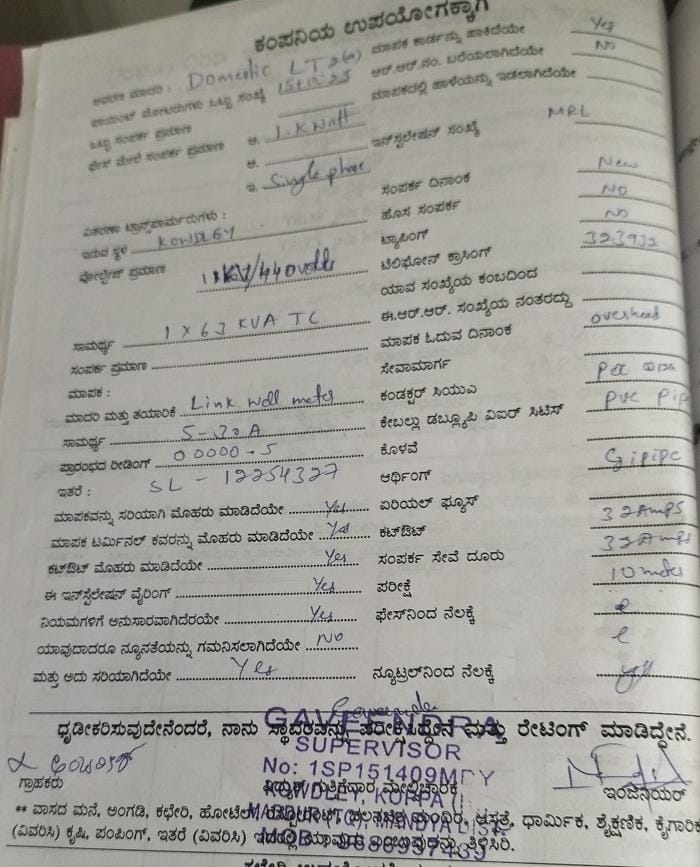 ಕಂಪನಿಯ ಉಪಯೋಗಕ್ಕಾಗಿ
ಮಾದರಿ : Domestic LT 2(a) ಮಾಪಕ ಕಾರ್ಡನ್ನು ಹಾಕಿದೆಯೇ Yes
ಒಟ್ಟು ಸಂಖ್ಯೆ ಆರ್.ಆರ್.ನಂ. ಬರೆಯಲಾಗಿದೆಯೇ NO
ಒಟ್ಟು ಸಂಪರ್ಕ ಪ್ರಮಾಣ ಮಾಪಕದಲ್ಲಿ ಹಾಳೆಯನ್ನು ಇಡಲಾಗಿದೆಯೇ
ಫೇಸ್ ಮೇಲೆ ಸಂಪರ್ಕ ಪ್ರಮಾಣ ಅ. 1. K Watt
ಆ. ಇನ್‌ಸ್ಟಲೇಷನ್ ಸಂಖ್ಯೆ MRL
ಇ. Single phase
ಸಂಪರ್ಕ ದಿನಾಂಕ New
ವಿತರಣಾ ಟ್ರಾನ್ಸ್‌ಫಾರ್ಮರುಗಳು :
ಇರುವ ಸ್ಥಳ KOWDLEY ಹೊಸ ಸಂಪರ್ಕ NO
ವೋಲ್ಟೇಜ್ ಪ್ರಮಾಣ 11KV/440volts ಟ್ಯಾಪಿಂಗ್ NO
ಟೆಲಿಫೋನ್ ಕ್ರಾಸಿಂಗ್ 323932
ಯಾವ ಸಂಖ್ಯೆಯ ಕಂಬದಿಂದ
ಸಾಮರ್ಥ್ಯ 1 X 63 KVA TC ಈ.ಆರ್.ಆರ್. ಸಂಖ್ಯೆಯ ನಂತರದ್ದು
ಸಂಪರ್ಕ ಪ್ರಮಾಣ ಮಾಪಕ ಓದುವ ದಿನಾಂಕ overhead
ಮಾಪಕ : ಸೇವಾಮಾರ್ಗ
ಮಾದರಿ ಮತ್ತು ತಯಾರಿಕೆ Link Well meter ಕಂಡಕ್ಟರ್ ಸಿಯುವಿ
ಸಾಮರ್ಥ್ಯ 5-30A ಕೇಬಲ್ಲು ಡಬ್ಲ್ಯೂಪಿ ವಿಐರ್ ಸಿಟಿಸ್ PVC Pip
ಪ್ರಾರಂಭದ ರೀಡಿಂಗ್ 00000-5 ಕೊಳವೆ
ಇತರೆ : SL - 12254327 ಆರ್ಥಿಂಗ್ Gipipe
ಮಾಪಕವನ್ನು ಸರಿಯಾಗಿ ಮೊಹರು ಮಾಡಿದೆಯೇ Yes ಏರಿಯಲ್ ಫ್ಯೂಸ್
ಮಾಪಕ ಟರ್ಮಿನಲ್ ಕವರನ್ನು ಮೊಹರು ಮಾಡಿದೆಯೇ Yes ಕಟ್‌ಔಟ್ 32Amps
ಕಟ್‌ಔಟ್ ಮೊಹರು ಮಾಡಿದೆಯೇ Yes ಸಂಪರ್ಕ ಸೇವೆ ದೂರು 32Amps
ಈ ಇನ್‌ಸ್ಟಲೇಷನ್ ವೈರಿಂಗ್ Yes ಪರೀಕ್ಷೆ 10 meter
ನಿಯಮಗಳಿಗೆ ಅನುಸಾರವಾಗಿದೆರಯೇ Yes ಫೇಸ್‌ನಿಂದ ನೆಲಕ್ಕೆ
ಯಾವುದಾದರೂ ನ್ಯೂನತೆಯನ್ನು ಗಮನಿಸಲಾಗಿದೆಯೇ NO
ಮತ್ತು ಅದು ಸರಿಯಾಗಿದೆಯೇ Yes ನ್ಯೂಟ್ರಲ್‌ನಿಂದ ನೆಲಕ್ಕೆ
ಧೃಡೀಕರಿಸುವುದೇನೆಂದರೆ, ನಾನು ಸ್ಥಾವರವನ್ನು ಪರೀಕ್ಷಿಸಿದ್ದೇನೆ ಮತ್ತು ರೇಟಿಂಗ್ ಮಾಡಿದ್ದೇನೆ.
GAVEENDRA
SUPERVISOR
No: 1SP151409MDY
ಗ್ರಾಹಕರು ಮೇಲ್ವಿಚಾರಕ ಇಂಜಿನಿಯರ್
KOWDLEY, KOPPA
** ವಾಸದ ಮನೆ, ಅಂಗಡಿ, ಕಛೇರಿ, ಹೋಟೆಲ್, ಆಸ್ಪತ್ರೆ, ಧಾರ್ಮಿಕ, ಶೈಕ್ಷಣಿಕ, ಕೈಗಾರಿಕ
(ವಿವರಿಸಿ) ಕೃಷಿ, ಪಂಪಿಂಗ್, ಇತರೆ (ವಿವರಿಸಿ) ಇದರಲ್ಲಿ ಯಾವುದು ತಿಳಿಸಿರಿ.